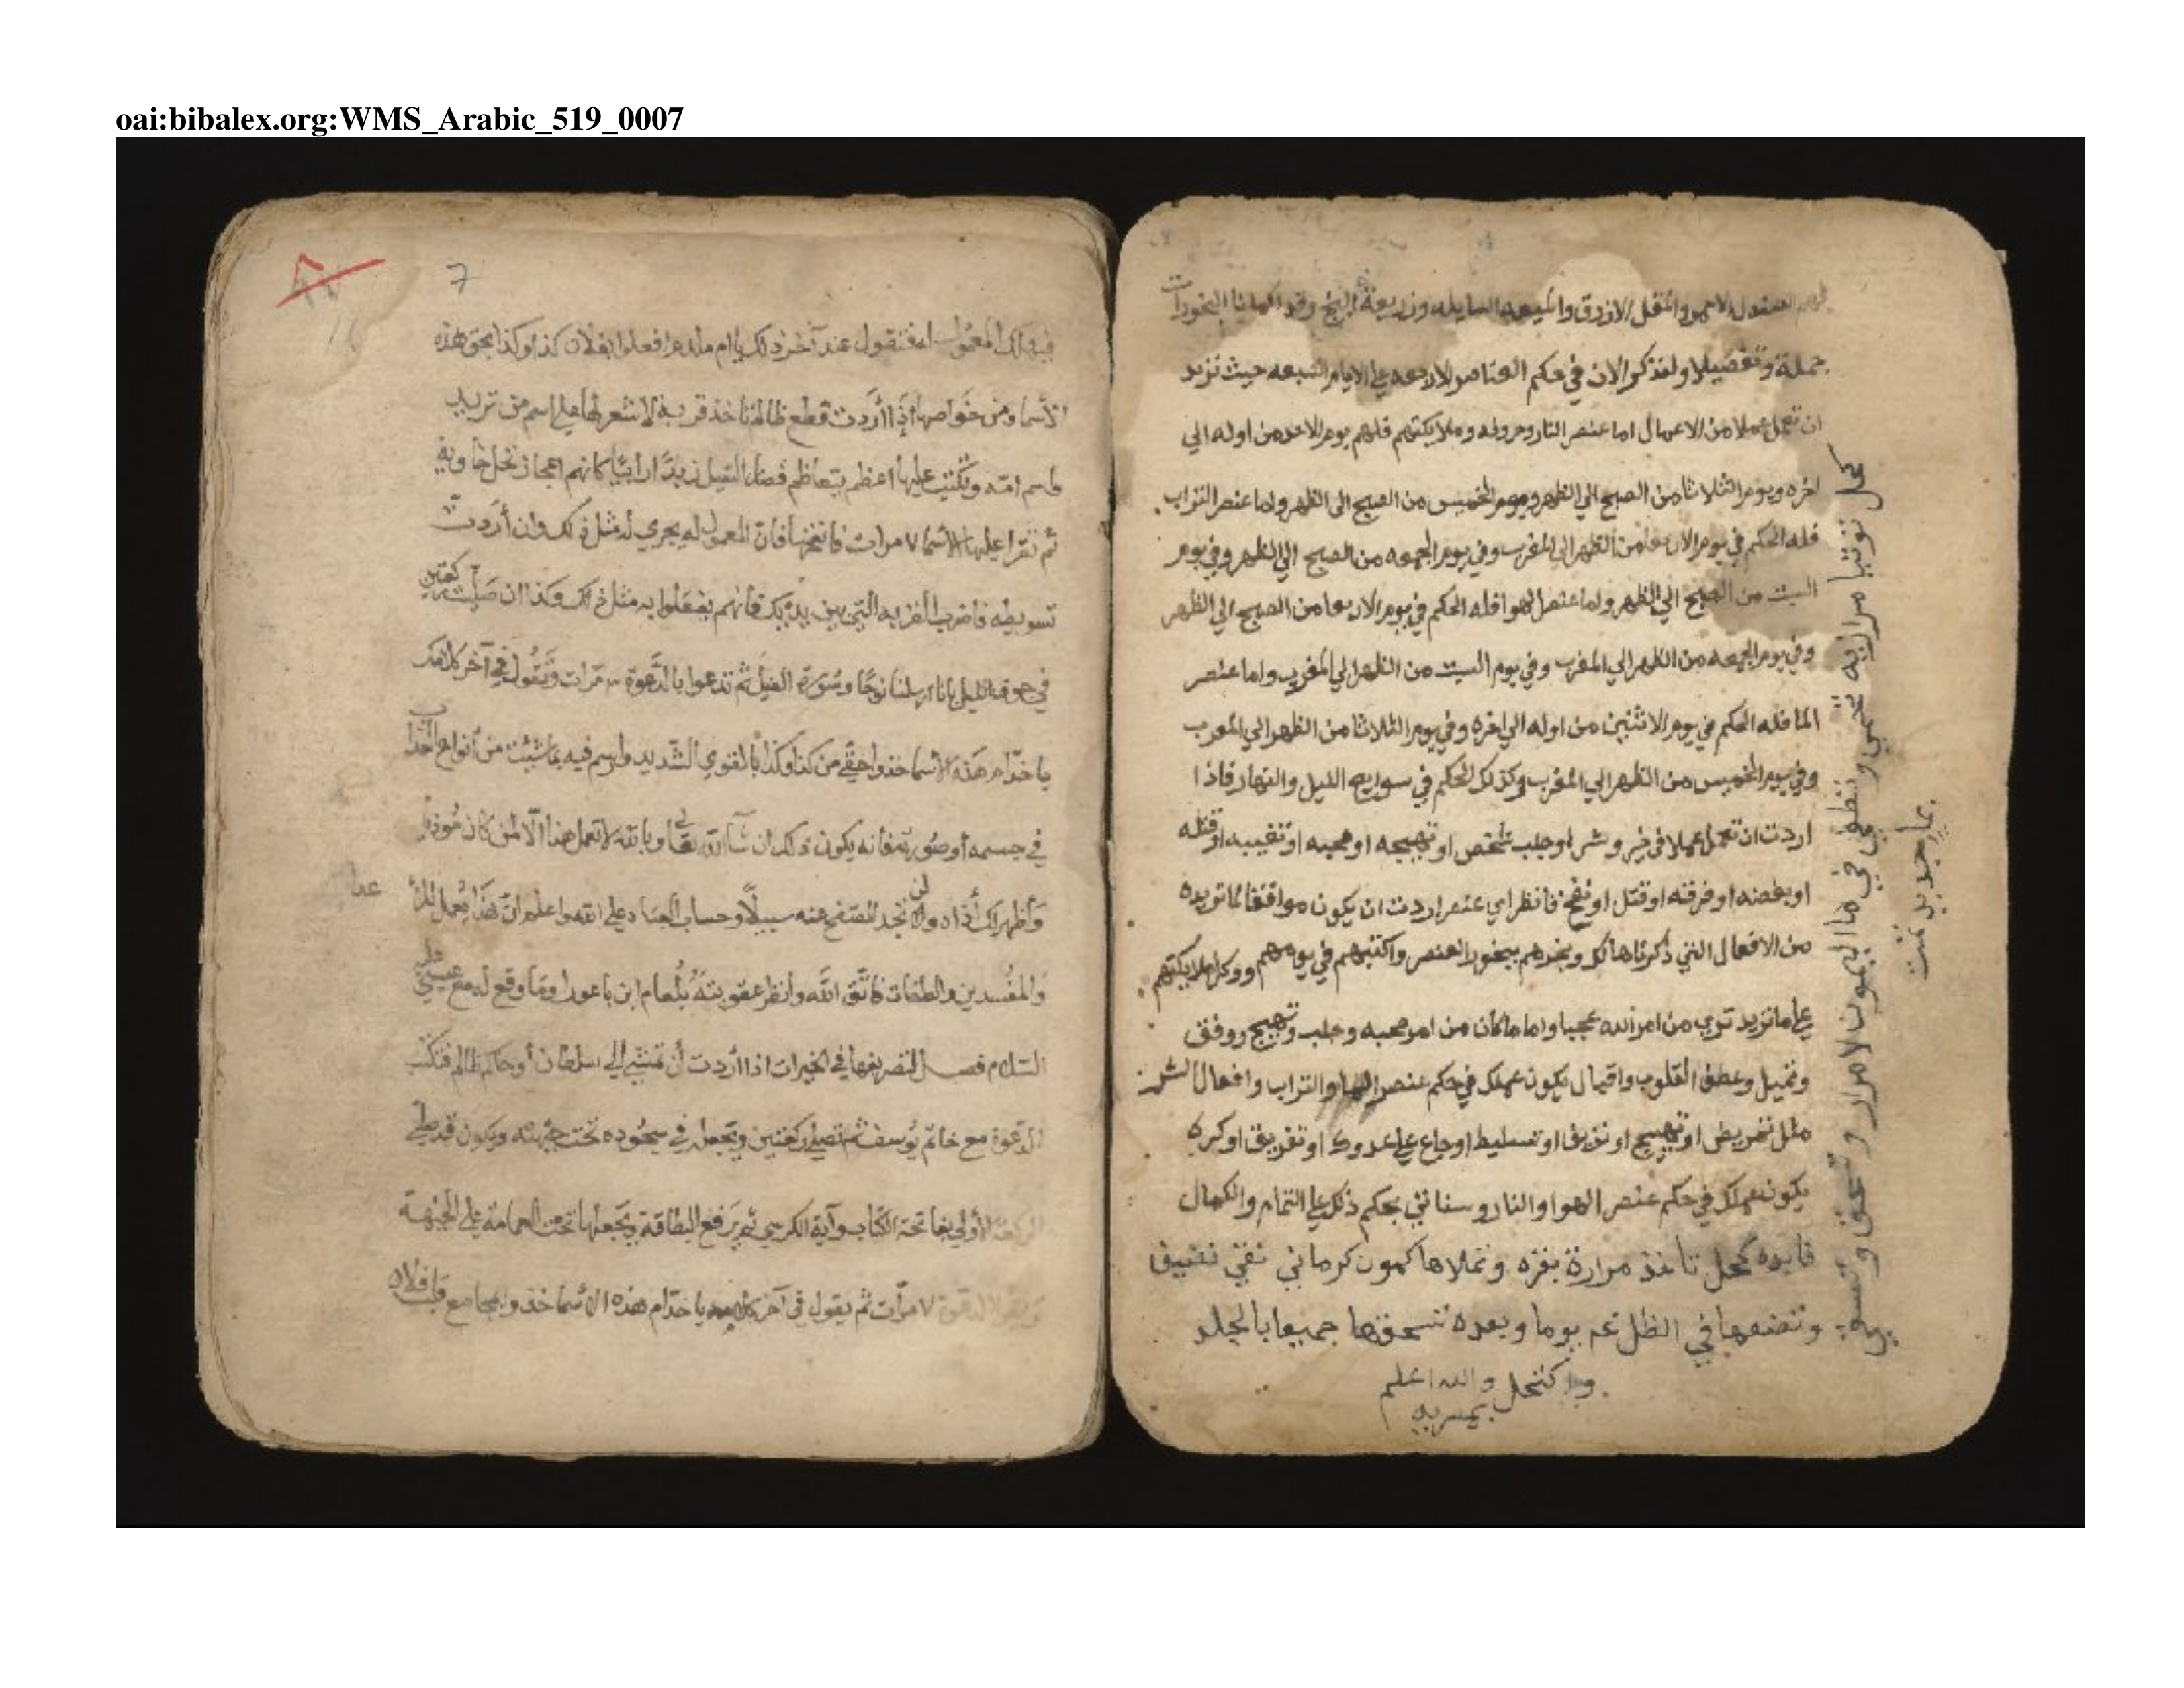 oai:bibalex.org:WMS_Arabic_519_0007
الصندل الاحمر والمقل الازرق والميعه السايله وزريعة البنج وقد اكملنا البخورات
جملة وتفصيلا ولنذكر الان في حكم العناصر الاربعه علي الايام السبعه حيث تريد
ان تعمل عملا من الاعمال اما عنصر النار وحروفه وملايكتهم فلهم يوم الاحد من اوله الي
اخره ويوم الثلاثا من الصبح الي الظهر ويوم الخميس من الصبح الي الظهر واما عنصر التراب
فله الحكم في يوم الاربعا من الظهر الي المغرب وفي يوم الجمعه من الصبح الي الظهر وفي يوم
السبت من الصبح الي الظهر واما عنصر الهوا فله الحكم في يوم الاربعا من الصبح الي الظهر
وفي يوم الجمعه من الظهر الي المغرب وفي يوم السبت من الظهر الي المغرب واما عنصر
الما فله الحكم في يوم الاثنين من اوله الي اخره وفي يوم الثلاثا من الظهر الي المغرب
وفي يوم الخميس من الظهر الي المغرب وكذلك الحكم في الليل والنهار فاذا
اردت ان تعمل عملا في خير وشر او جلب شخص او تهييجه او محبه او تغييبه او قتله
او بغضه او فرقته او قتل او فانظر اي عنصر اردت ان يكون موافقا لما تريده
من الافعال التي ذكرناها لك وبخرهم ببخور العنصر واكتبهم في يومهم ووكل ملايكتهم
علي ما تريد تري من امر الله عجبا واما ما كان من امر محبه وجلب وتهييج ووفق
وتميل وعطف القلوب واقبال يكون عملك في حكم عنصر الما والتراب وافعال الشر
مثل تمريض او تهييج او نزيف او تسليط اوجاع علي عدوك او تفريق او كره
يكون عملك في حكم عنصر الهوا والنار وسناتي بحكم ذلك علي التمام والكمال
فايده كحل تاخذ مرارة بقره وتملاها كمون كرماني نقي
وتضعها في الظل يوما وبعده تسحقها جميعا بالجلد
واكتحل والله اعلم
كحل توتيا مرازبه تحمي وتطفي في ما الليمون مرار وتسحق
بماجديد تمت
7
فتقول عند آخر ذلك افعلوا بفلان كذا وكذا بحق هذه
الأسما ومن خواصها إذا أردت قطع ظالم تاخذ قربة لا شعر لها علي اسم من تريد
واسم امه وتكتب عليها زبدا رابيا كانهم اعجاز نخل خاوية
ثم تقرا عليها الأسما ٧ مرات فان المعمول له يجري له مثل ذلك وان أردت
فاضرب القربه التي بين يديك فانهم يفعلوا به مثل ذلك وكذا ان صليت ركعتين
في جوف الليل بإنا ارسلنا نوحا وسورة الفيل ثم تدعوا بالدعوة مرات وتقول في آخر كلامك
يا خدام هذه الأسما خذوا حقي من كذا وكذا بالقوي الشديد وارسم فيه بما شئت من أنواع العذاب
في جسمه أو صورته فانه يكون ذلك ان شاء الله تعالى وبالله لا تعمل هذا الا لمن كان مؤذيا
وأظهر لك أذاه ولن تجد للصفح عنه سبيلا وحساب العباد علي الله واعلم ان هذا يعمل
والمفسدين والطغات فاتق الله وانظر عقوبته بلعام ابن باعورا وما وقع له مع عيسي عليه
السلام فصل لتصريفها في الخيرات اذا أردت أن تمشي إلي سلطان أو حاكم ظالم فتكتب
الدعوة مع خاتم يوسف ثم تصلي ركعتين وتجعل في سجوده تحت جبهته ويكون قد صلي
الركعة الأولي بفاتحة الكتاب وآية الكرسي ثم يرفع البطاقة ويجعلها تحت العمامة علي الجبهة
ويقرا الدعوة ٧ مرات ثم يقول في آخر كلامه يا خدام هذه الأسما خذوا بمجامع قلب فلان